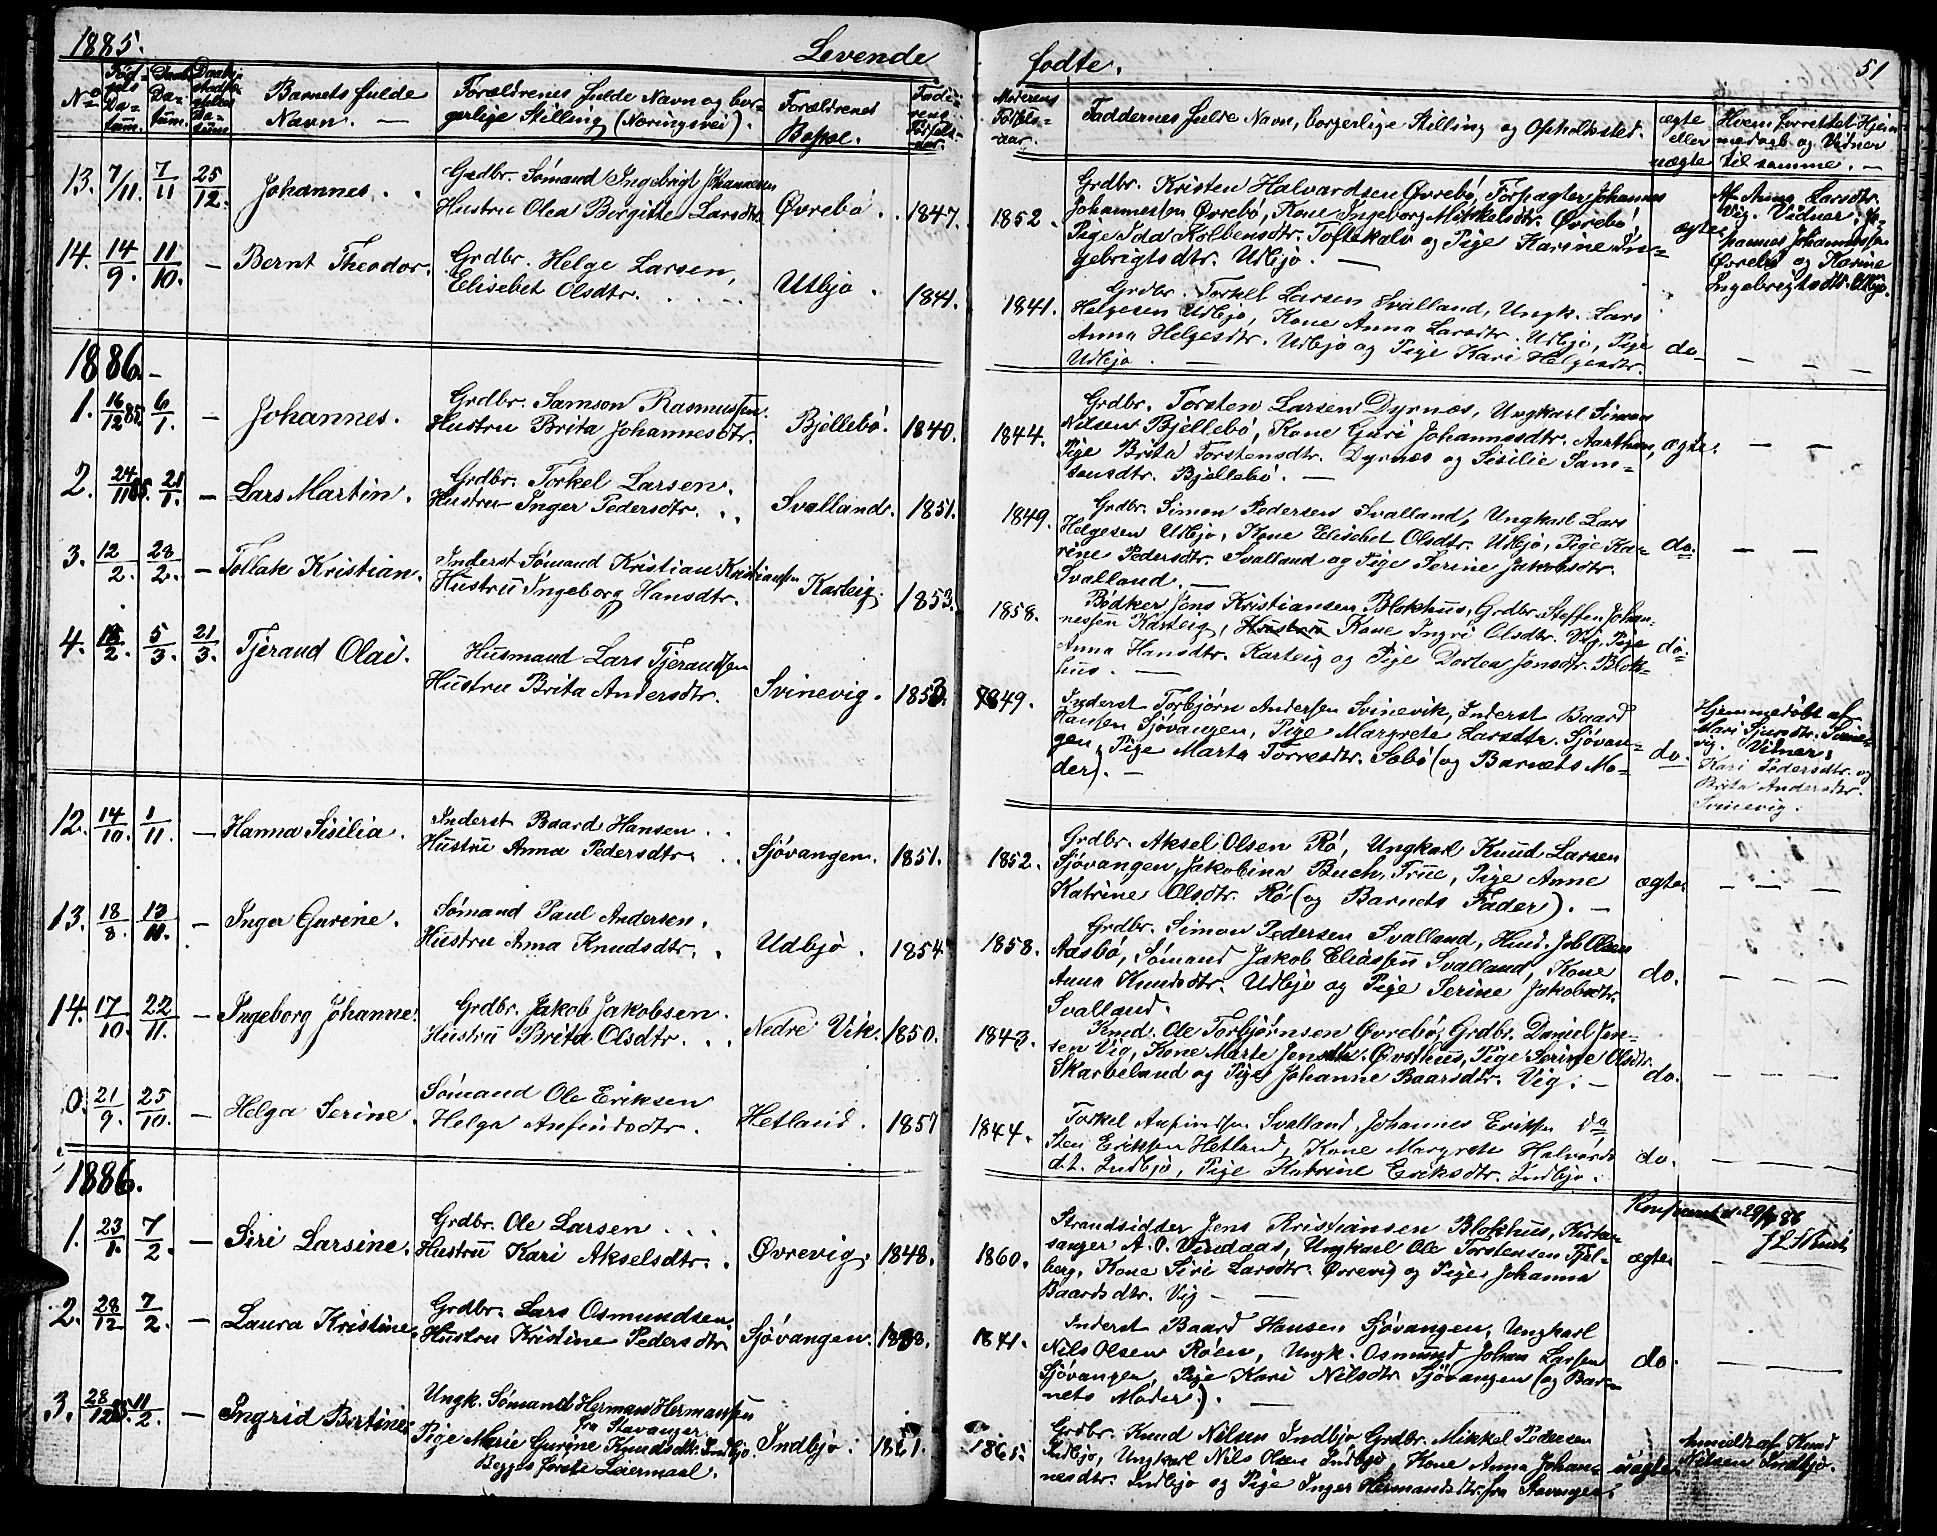 1885.
Levende
No
Fød-
sels
Da-
tum.
Daabs
Da-
tum.
Barnets fulde
Navn. —
Forældrenes fulde Navn og bor-
gerlige Stilling (Næringsvei).
Forældrenes
Bopæl.
Fade-
rens
Fødsels-
aar.
13. 7/11. 7/11 25/12. Johannes. Grdbr. Sømand Ingebrigt Johannesen
Hustru Olea Bergitte Larsdtr. Øvrebø. 1847.
14. 14/9. 11/10. — Bernt Theodor. Grdbr. Helge Larsen,
Elisebet Olsdtr. Utbjo. 1841.
1886. —
1. 16/12 85. 6/1. — Johannes. Grdbr. Samson Rasmussen.
Hustru Brita Johannesdtr. Bjellebø. 1840.
2. 24/11 85. 21/1. — Lars Martin. Grdbr. Torkel Larsen.
Hustru Inger Pedersdtr. Svalland. 1851.
3. 12/2. 28/2. — Tollak Kristian. Inderst Sømand Kristian Kristiansen
Hustru Ingeborg Hansdtr. Karteig. 1853.
4. 2. 5/3. 21/3. Tjerand Olai. Husmand Lars Tjerandsen
Hustru Brita Andersdtr. Svinevig. 1853.
12. 14/10. 1/11. — Hanna Sisilia. Inderst Baard Hansen
Hustru Anna Pedersdtr. Sjøvangen. 1851.
13. 18/8. — Inger Gurine. Sømand Paul Andersen.
Hustru Anna Knudsdtr. Udbjo. 1854
14. 17/10. 22/11. — Ingeborg Johanne. Grdbr. Jakob Jakobsen.
Hustru Brita Olsdtr. Nedre Vik. 1850.
0. 21/9. 25/10. — Helga Serine. Sømand Ole Eriksen
Helga Anfindsdtr. Hetland. 1857
1886.
1. 23/1. 7/2. — Siri Larsine. Grdbr. Ole Larsen
Hustru Kari Akselsdtr. Øvrevig. 1848.
2. 28/12 7/2. — Laura Kristine. Grdbr. Lars Osmundsen.
Hustru Kristine Pedersdtr Sjøvangen.
3. 28/12 85. 11/2. — Ingrid Bertine Ungk. Sømand Herman Hermansen
fra Stavanger.
Pige Marie Gurine Knudsdtr. Indbjo. Indbjo. 1861.
Begges første Leiermaal.
fødte.
51
Moderens
Fødsels-
aar.
Faddernes fulde Navn, borgerlige Stilling og Opholdssted.
ægte
eller
uægte
Hvem forrettet Hjem-
medaab og Vidner
til samme. —
1852. Grdbr. Kristen Halvardsen Øvrebø, Forpagter Johannes
Johannessen Øvrebø, Kone Ingeborg Mikkelsdtr. Øvrebø,
Pige Ida Kolbensdtr. Toftekalv og Pige Karine In-
gebrigtsdtr. Udbjo. —
ægte
Af Anna Larsdtr.
Vig. Vidner: Jo-
hannes Johannessen
Øvrebø og Karine
Ingebrigtsdtr. Utbjo.
1841. Grdbr. Torkel Larsen Svalland, Ungk. Lars
Helgesen Udbjo, Kone Anna Larsdtr. Udbjo, Pige
Anna Helgesdtr. Udbjo og Pige Kari Helgesdtr.
Udbjo. —
do — — —
1844. Grdbr. Torsten Larsen Dyrnæs, Ungkarl Simon
Nilsen Bjellebø, Kone Guri Johannesdtr. Aarthun,
Pige Brita Torstensdtr. Dyrnæs og Sisilie Sam-
sonsdtr. Bjellebø. —
ægte. — —
1849. Grdbr. Simon Pedersen Svalland, Ungkarl Lars
Helgesen Udbjo, Kone Elisebet Olsdtr. Udbjo, Pige Ka-
rine Pedersdtr. Svalland og Pige Serine Jakobsdtr.
Svalland. —
do. — —
1858. Bødker Jens Kristiansen Blokhus, Grdbr. Steffen Johan-
nessen Karteig, Hustru Kone Ingri Olsdtr. Vig, Pige
Anna Hansdtr. Karteig og Pige Dortea Jensdtr. Blok-
hus. —
do.
1849. Inderst Torbjørn Andersen Svinevik, Inderst Baard
Hansen Sjøvangen, Pige Margrete Larsdtr. Sjøvan-
gen, Pige Marta Torresdtr. Sæbø (og Barnets Mo-
der). —
do.
Hjemmedøbt af
Mari Sjursdtr. Svine-
vig. Vitner:
Kari Pedersdtr. og
Brita Andersdtr.
Svinevig.
1852. Grdbr. Aksel Olsen Rø, Ungkarl Knud Larsen
Sjøvangen, Jakobina Buch, Frue, Pige Anne
Katrine Olsdtr. Rø (og Barnets Fader). —
ægte — — —
1858. Grdbr. Simon Pedersen Svalland, Husd. Job Olsen
Aasbø, Sømand Jakob Eliassen Svalland, Kone
Anna Knudsdtr. Udbjo og Pige Serine Jakobsdtr.
Svalland.
do. — — —
1843. Ole Torbjørnsen Øvrebø, Grdbr. Daniel Jen-
sen Vig, Kone Marte Jensdtr. Øvsthus, Pige Serine Olsdtr.
Skarveland og Pige Johanne Baarsdtr. Vig. —
do. — — —
1844. Torkel Anfindsen Svalland, Johannes Eriksen do
Sten Eriksen Hetland, Kone Margrete Halvards
d.t. Indbjo, Pige Katrine Eriksdtr. Indbjo.
do. — — —
1860. Strandsidder Jens Kristiansen Blokhus, Kirke-
sanger A. O. Vindaas, Ungkarl Ole Torstensen Fjel-
berg, Kone Siri Larsdtr. Øvrevig og Pige Johanna
Baardsdtr. Vig —
ægte —
1841. Inderst Baard Hansen Sjøvangen, Ungkarl
Nils Olsen Røen, Ungk. Osmund Johan Larsen
Sjøvangen, Pige Kari Nilsdtr. Sjøvangen (og Bar-
nets Moder). —
do. — —
1865. Grdbr. Knud Nilsen Indbjo Grdbr. Mikkel Pedersen
Indbjo, Ungkarl Nils Olsen Indbjo, Kone Anna Johan-
nesdtr. Indbjo og Pige Inger Hermansdtr. fra Stavanger.
uægte
Anmeldt af Knud
Nilsen Indbjo.